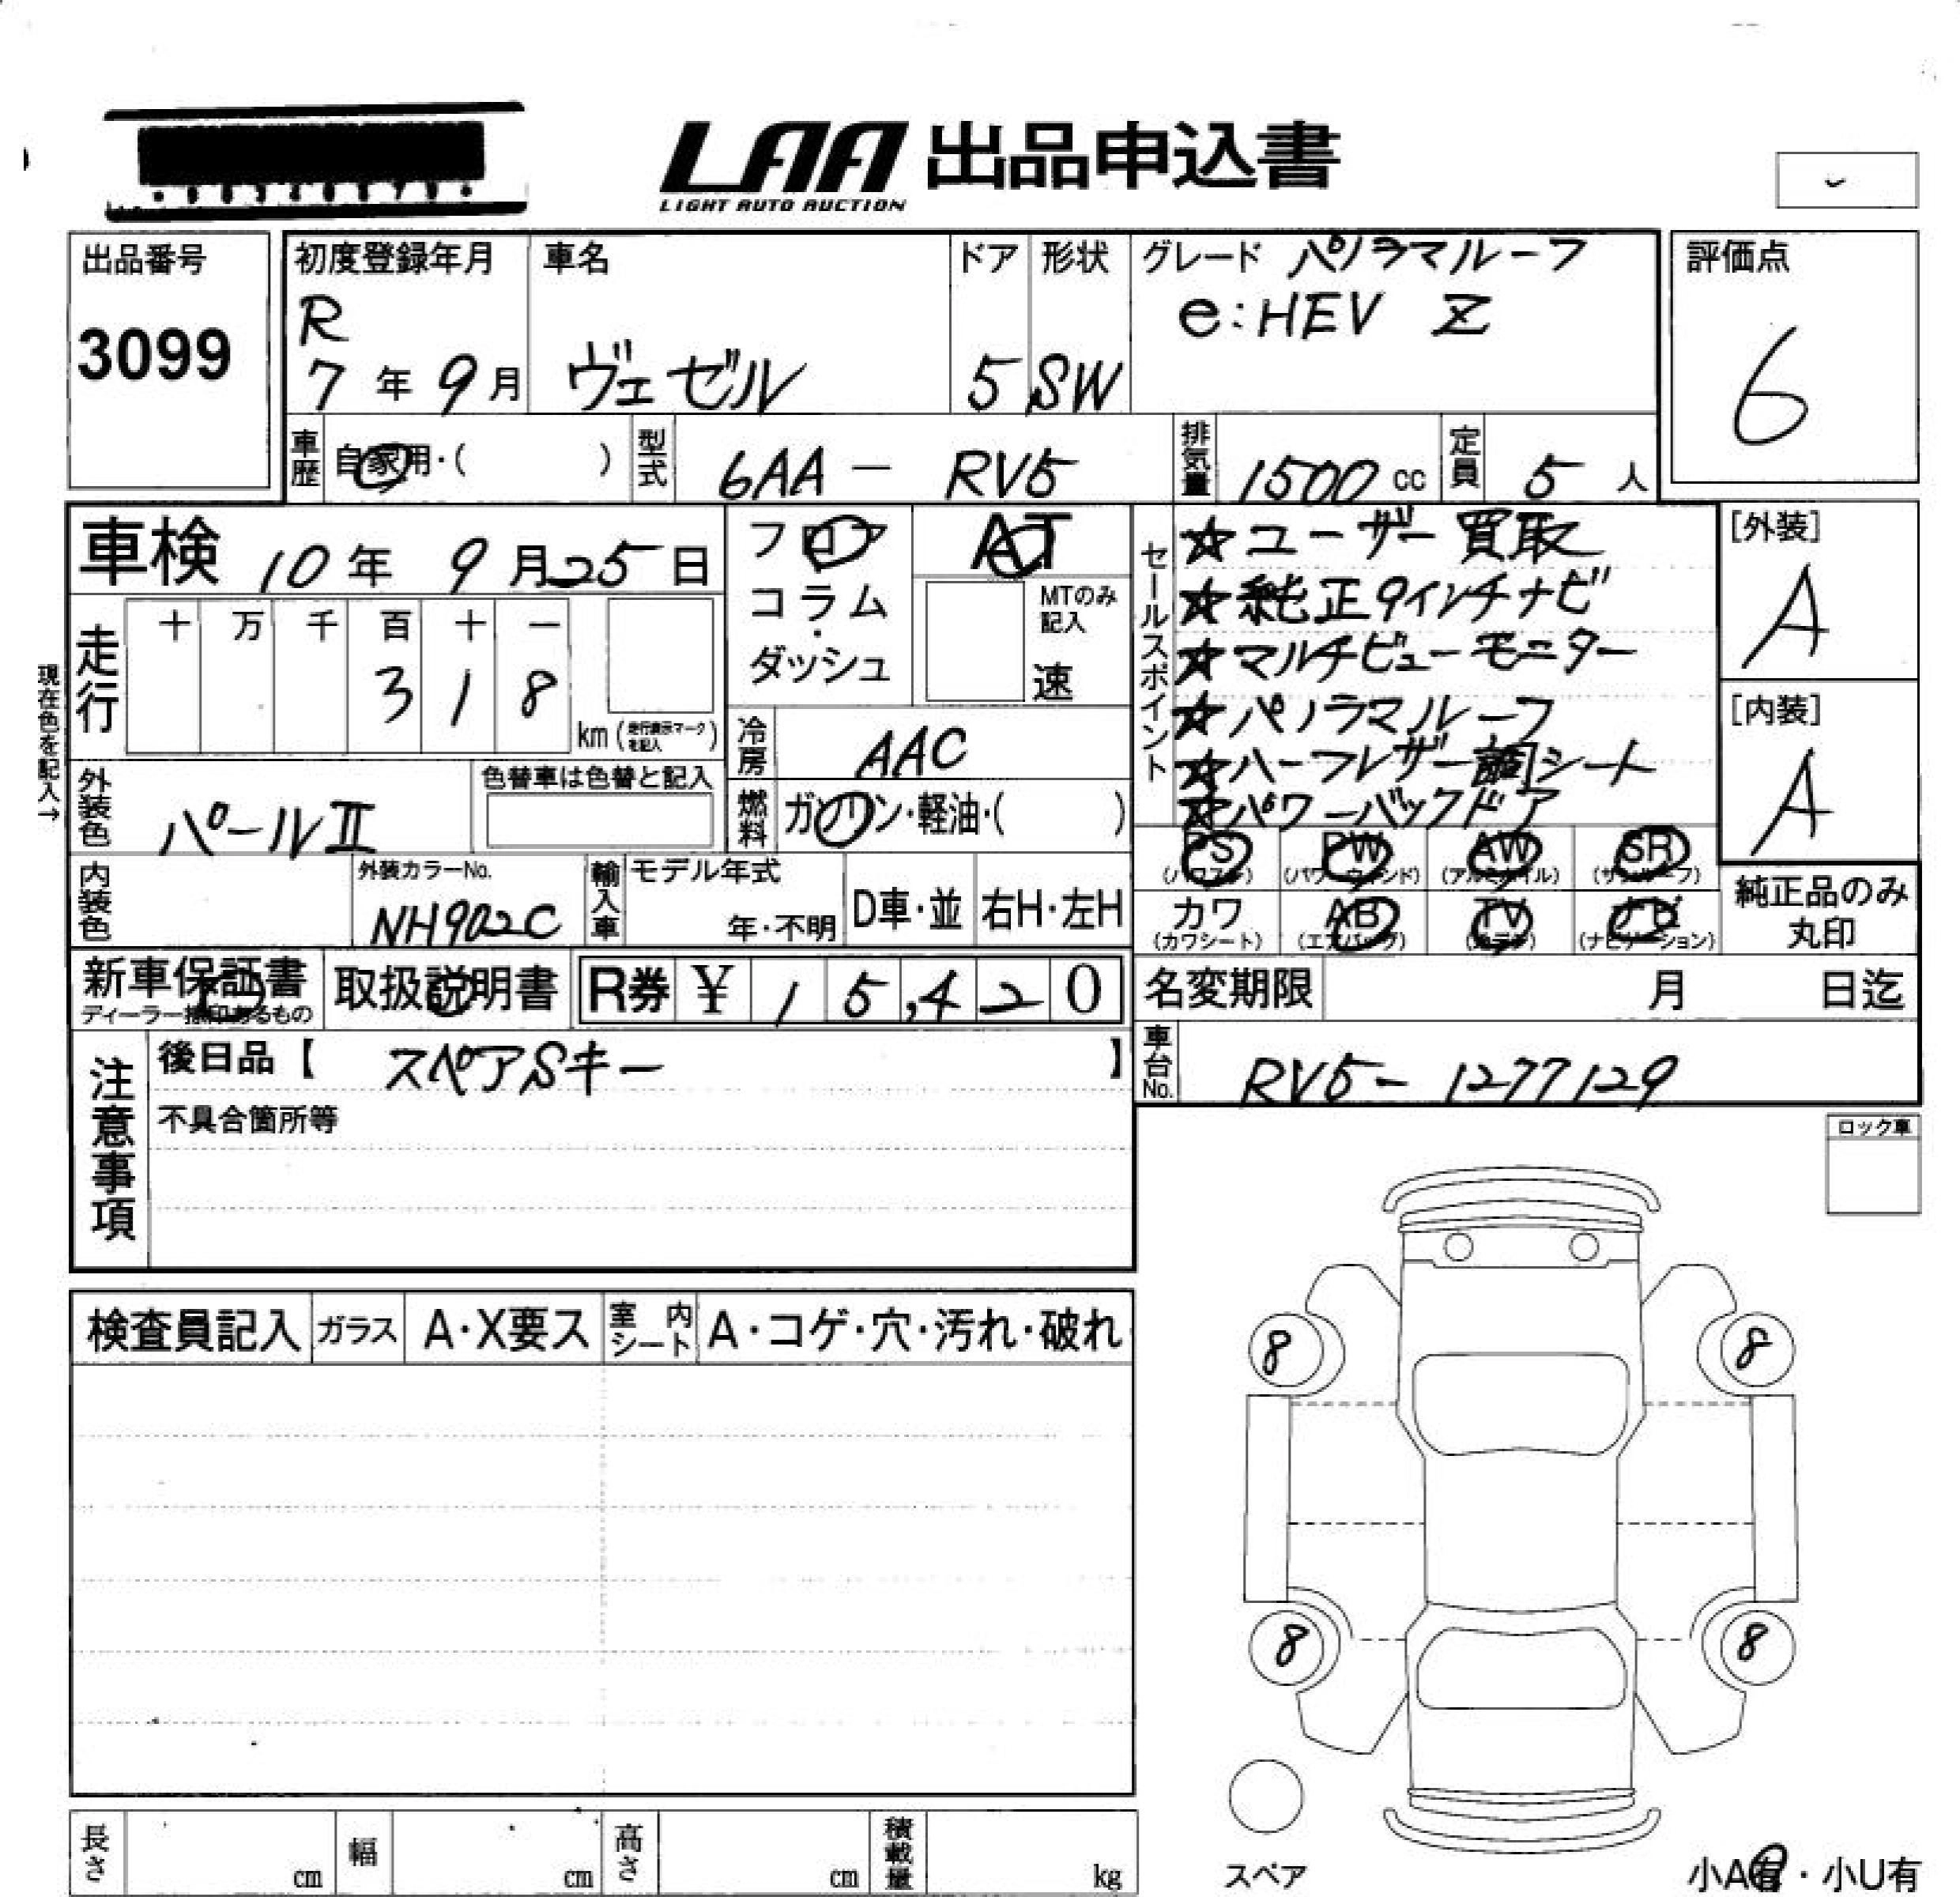 LAA 出品申込書
LIGHT AUTO AUCTION
出品番号
3099
初度登録年月
R
7年9月
車名
ヴェゼル
ドア
5
形状
SW
グレード パノラマルーフ
e:HEV Z
評価点
6
車歴
自家用・( )
型式
6AA - RV5
排気量
1500 cc
定員
5人
車検 10年 9月25日
フロア
コラム
・
ダッシュ
AT
MTのみ
記入
速
セールスポイント
☆ユーザー買取
☆純正9インチナビ
☆マルチビューモニター
☆パノラマルーフ
☆ハーフレザー調シート
☆パワーバックドア
[外装]
A
[内装]
A
現在色を記入→
走行
十 万 千 百 十 一
3 1 8
km(走行表示マークを記入)
冷房
AAC
外装色
パールⅡ
色替車は色替と記入
燃料
ガソリン・軽油・( )
PS (パワステ)
PW (パワーウィンド)
AW (アルミホイル)
SR (サンルーフ)
カワ (カワシート)
AB (エアバッグ)
TV
ナビ (ナビゲーション)
純正品のみ
丸印
内装色
外装カラーNo.
NH902C
輸入車
モデル年式
年・不明
D車・並
右H・左H
新車保証書
ディーラー捺印あるもの
取扱説明書
R券 ¥ 1 5,4 2 0
名変期限 月 日迄
注意事項
後日品【 スペアSキー 】
不具合箇所等
車台No.
RV5- 1277129
ロック車
検査員記入
ガラス
A・X要ス
室内シート
A・コゲ・穴・汚れ・破れ
8 8
8 8
長さ cm
幅 cm
高さ cm
積載量 kg
スペア
小A有・小U有